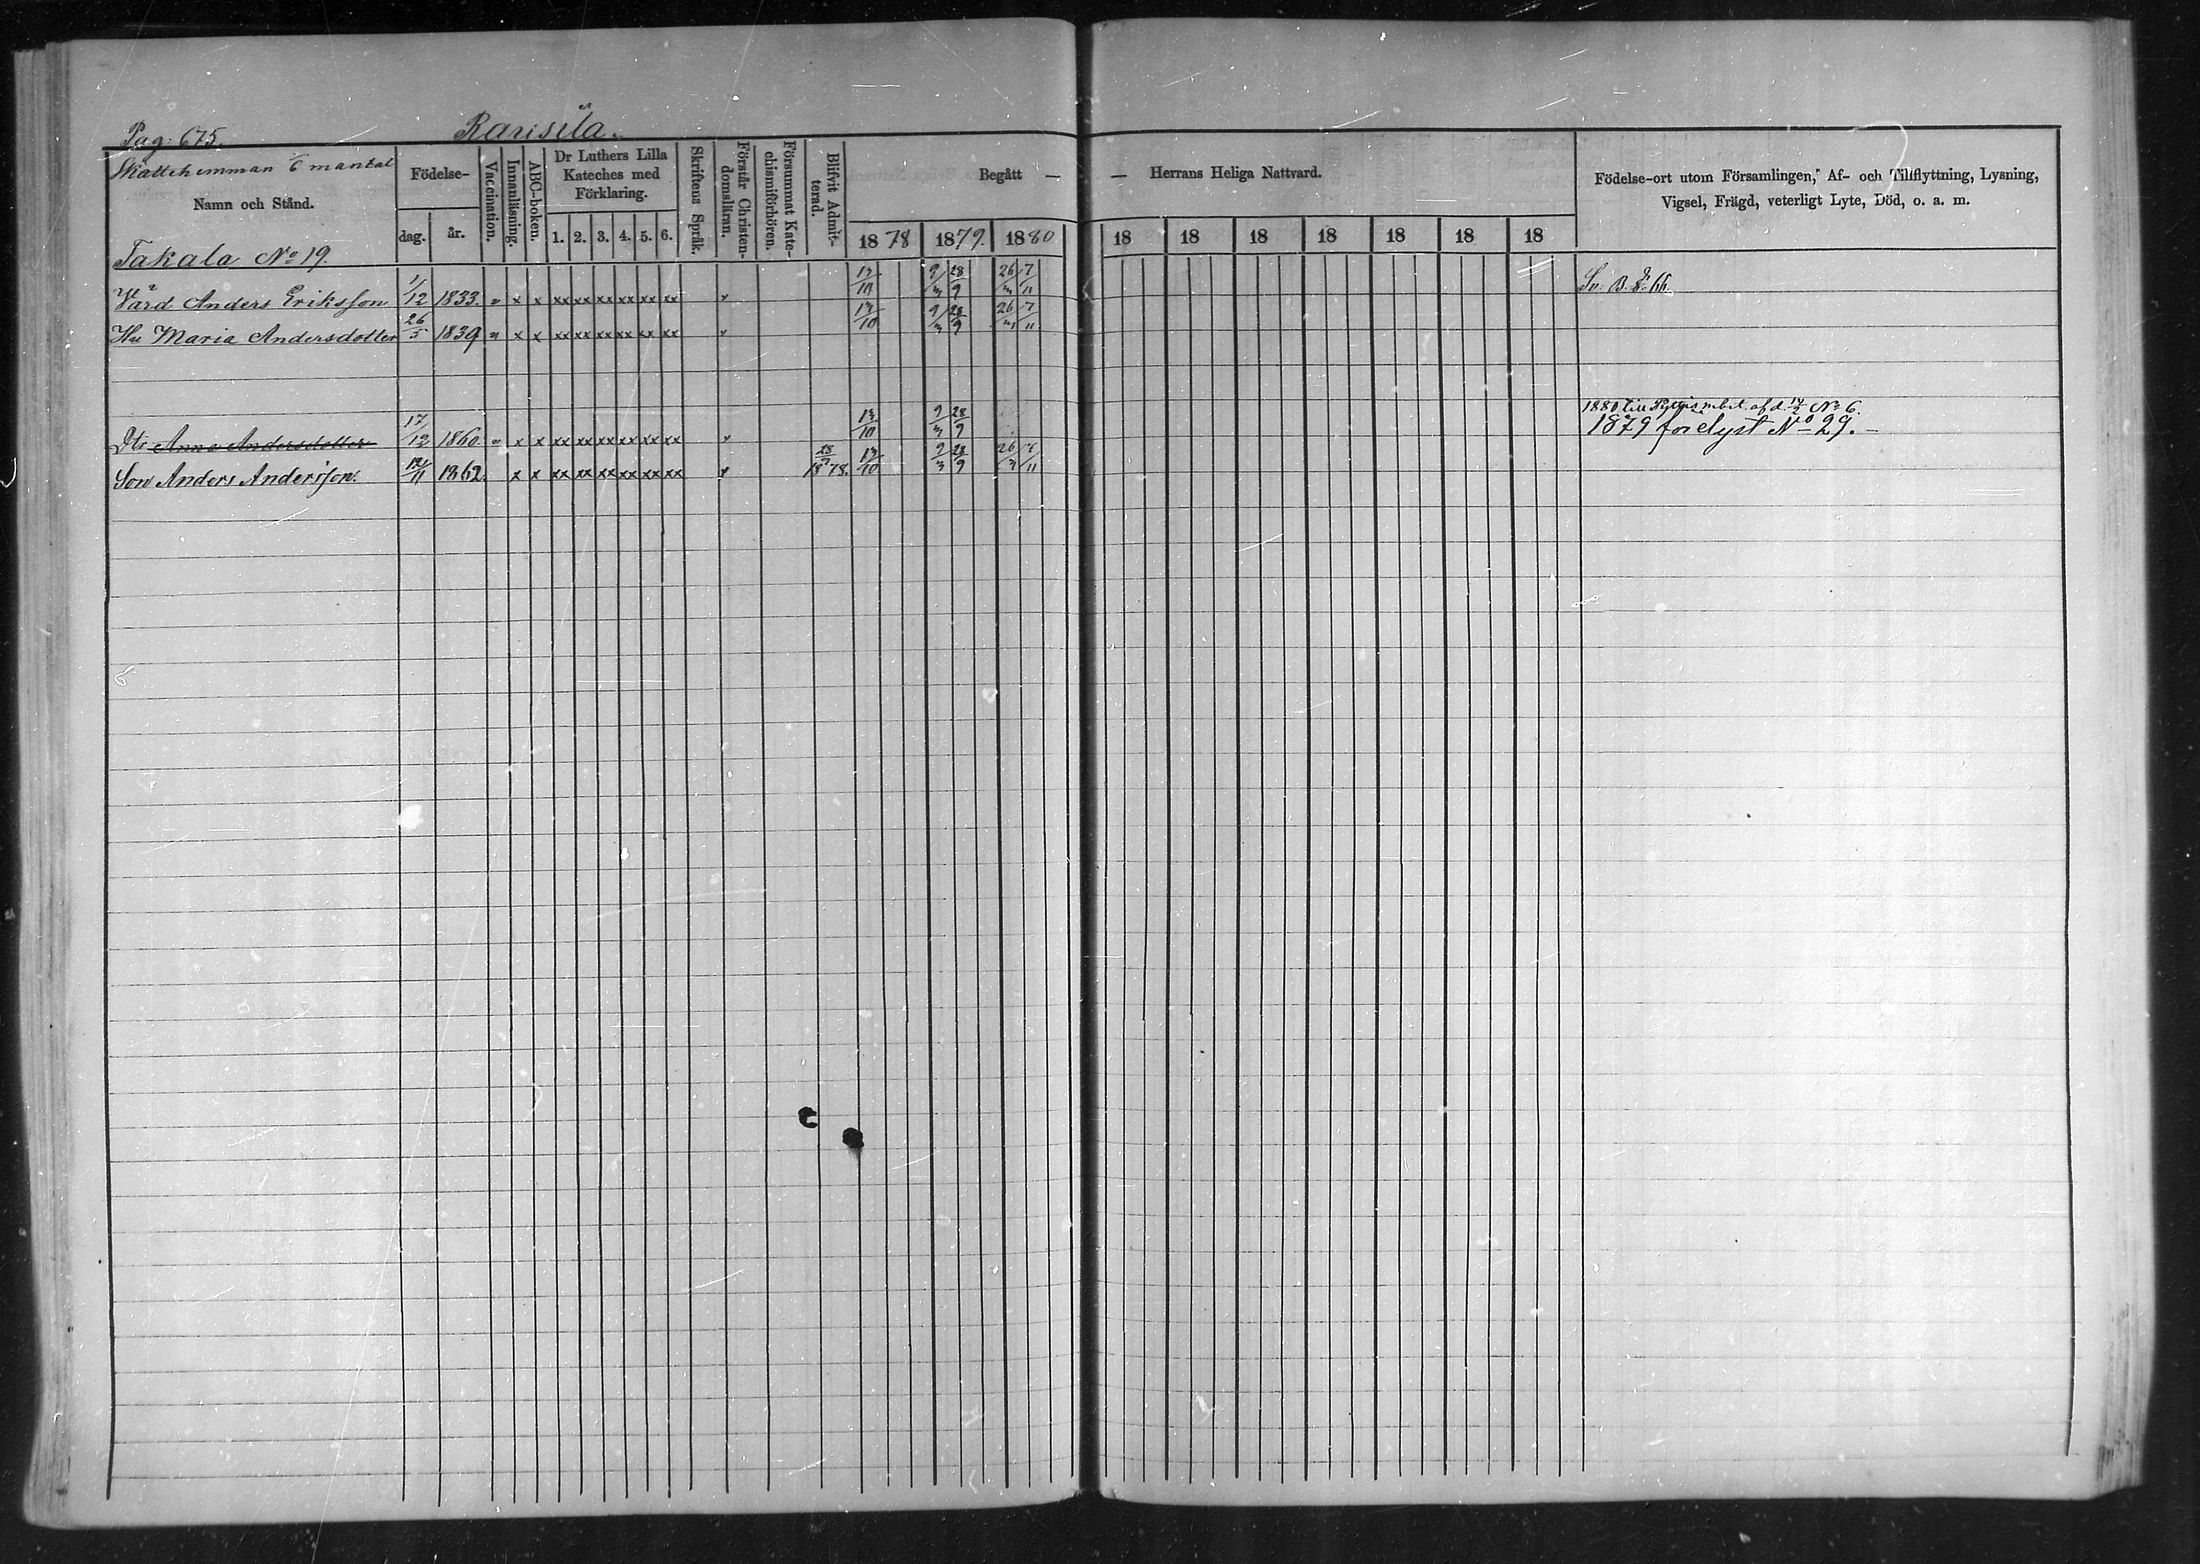 Pag: 675.
Skattehemman 6 mantal
Namn och Stånd.
Födelse-
dag. år.
Vaccination.
Innanläsning.
ABC-boken.
Dr Luthers Lilla
Kateches med
Förklaring.
1. 2. 3. 4. 5. 6.
Skriftens Språk.
Förstår Christen-
domsläran.
Försummat Kate-
chismiförhören.
Blifvit Admit-
terad.
Begått —
— Herrans Heliga Nattvard.
1878 1879. 1880 18 18 18 18 18 18 18
Födelse-ort utom Församlingen, Af- och Tillflyttning, Lysning,
Vigsel, Frägd, veterligt Lyte, Död, o. a. m.
Takala No 19.
Värd Anders Eriksson 1/12 1833. x x xx xx xx xx xx xx 13/10 9/3 28/9 26/3 7/11
Hu Maria Andersdotter 26/5 1839 x x xx xx xx xx xx xx 13/10 9/3 28/9 26/3 7/11
Dtr Anna Andersdotter 17/12 1860. x x xx xx xx xx xx xx 13/10 9/3 28/9 1880 till mbet. af d. No 6.
1879 No 29.
Son Anders Andersson. 12/11 1862. x x xx xx xx xx xx xx 1878. 13/10 9/3 28/9 26/3 7/11